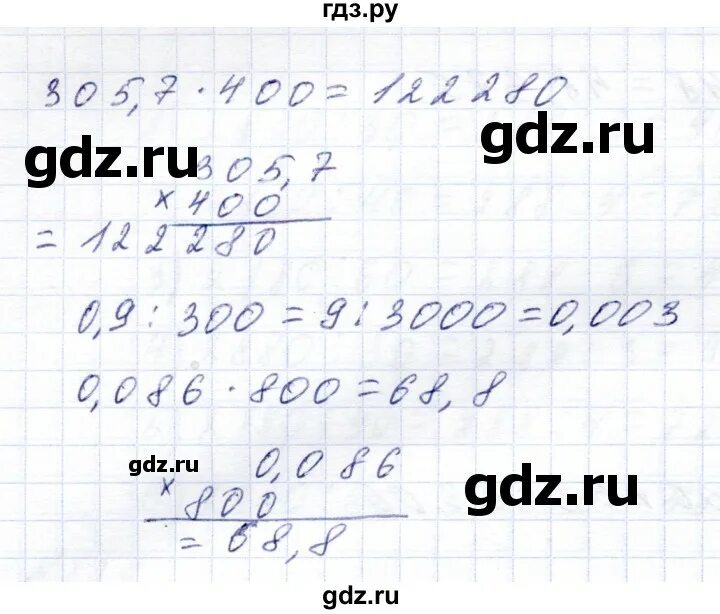 гдз.ру
305,7 · 400 = 122280
gdz.ru
gdz.ru
305,7
× 400
= 122 280
0,9 : 300 = 9 : 3000 = 0,003
0,086 · 800 = 68,8
gdz.ru
0,086
× 800
gdz.ru
= 68,8
gdz.ru